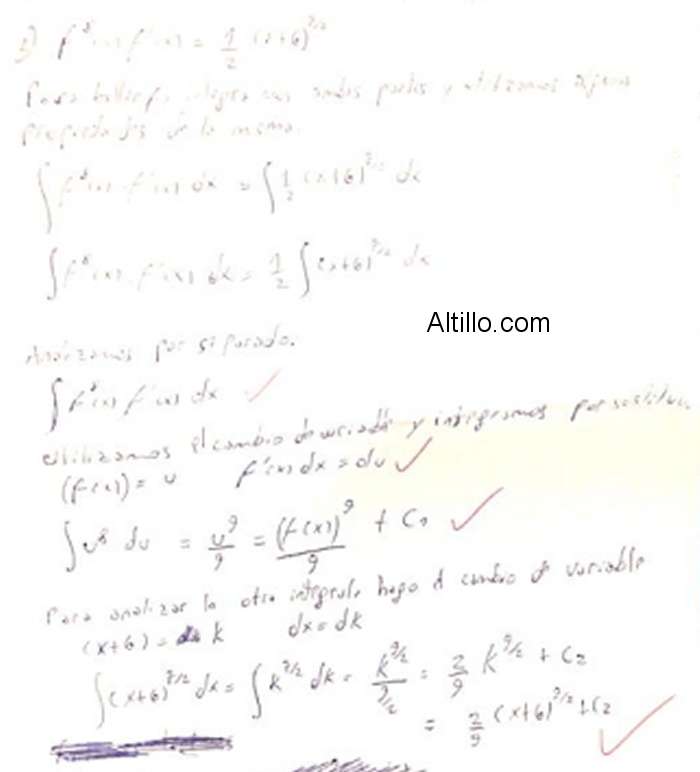 f⁸(x) f'(x) = 1/2 (x+6)^7/2
Para hallar f, integra mos ambas partes y utilizamos algunas
propiedades de la misma.
∫ f⁸(x) · f'(x) dx = ∫ 1/2 (x+6)^7/2 dx
∫ f⁸(x) · f'(x) dx = 1/2 ∫ (x+6)^7/2 dx
Altillo.com
Analizamos por separado.
∫ f⁸(x) f'(x) dx
Utilizamos el cambio de variable y integramos por
(f(x)) = u f'(x) dx = du
∫ u⁸ du = u⁹/9 = (f(x))⁹/9 + C₁
Para analizar la otra integral hago el cambio de variable
(x+6) = k dx = dk
∫ (x+6)^7/2 dx = ∫ k^7/2 dk = k^9/2 / 9/2 = 2/9 k^9/2 + C₂
= 2/9 (x+6)^9/2 + C₂